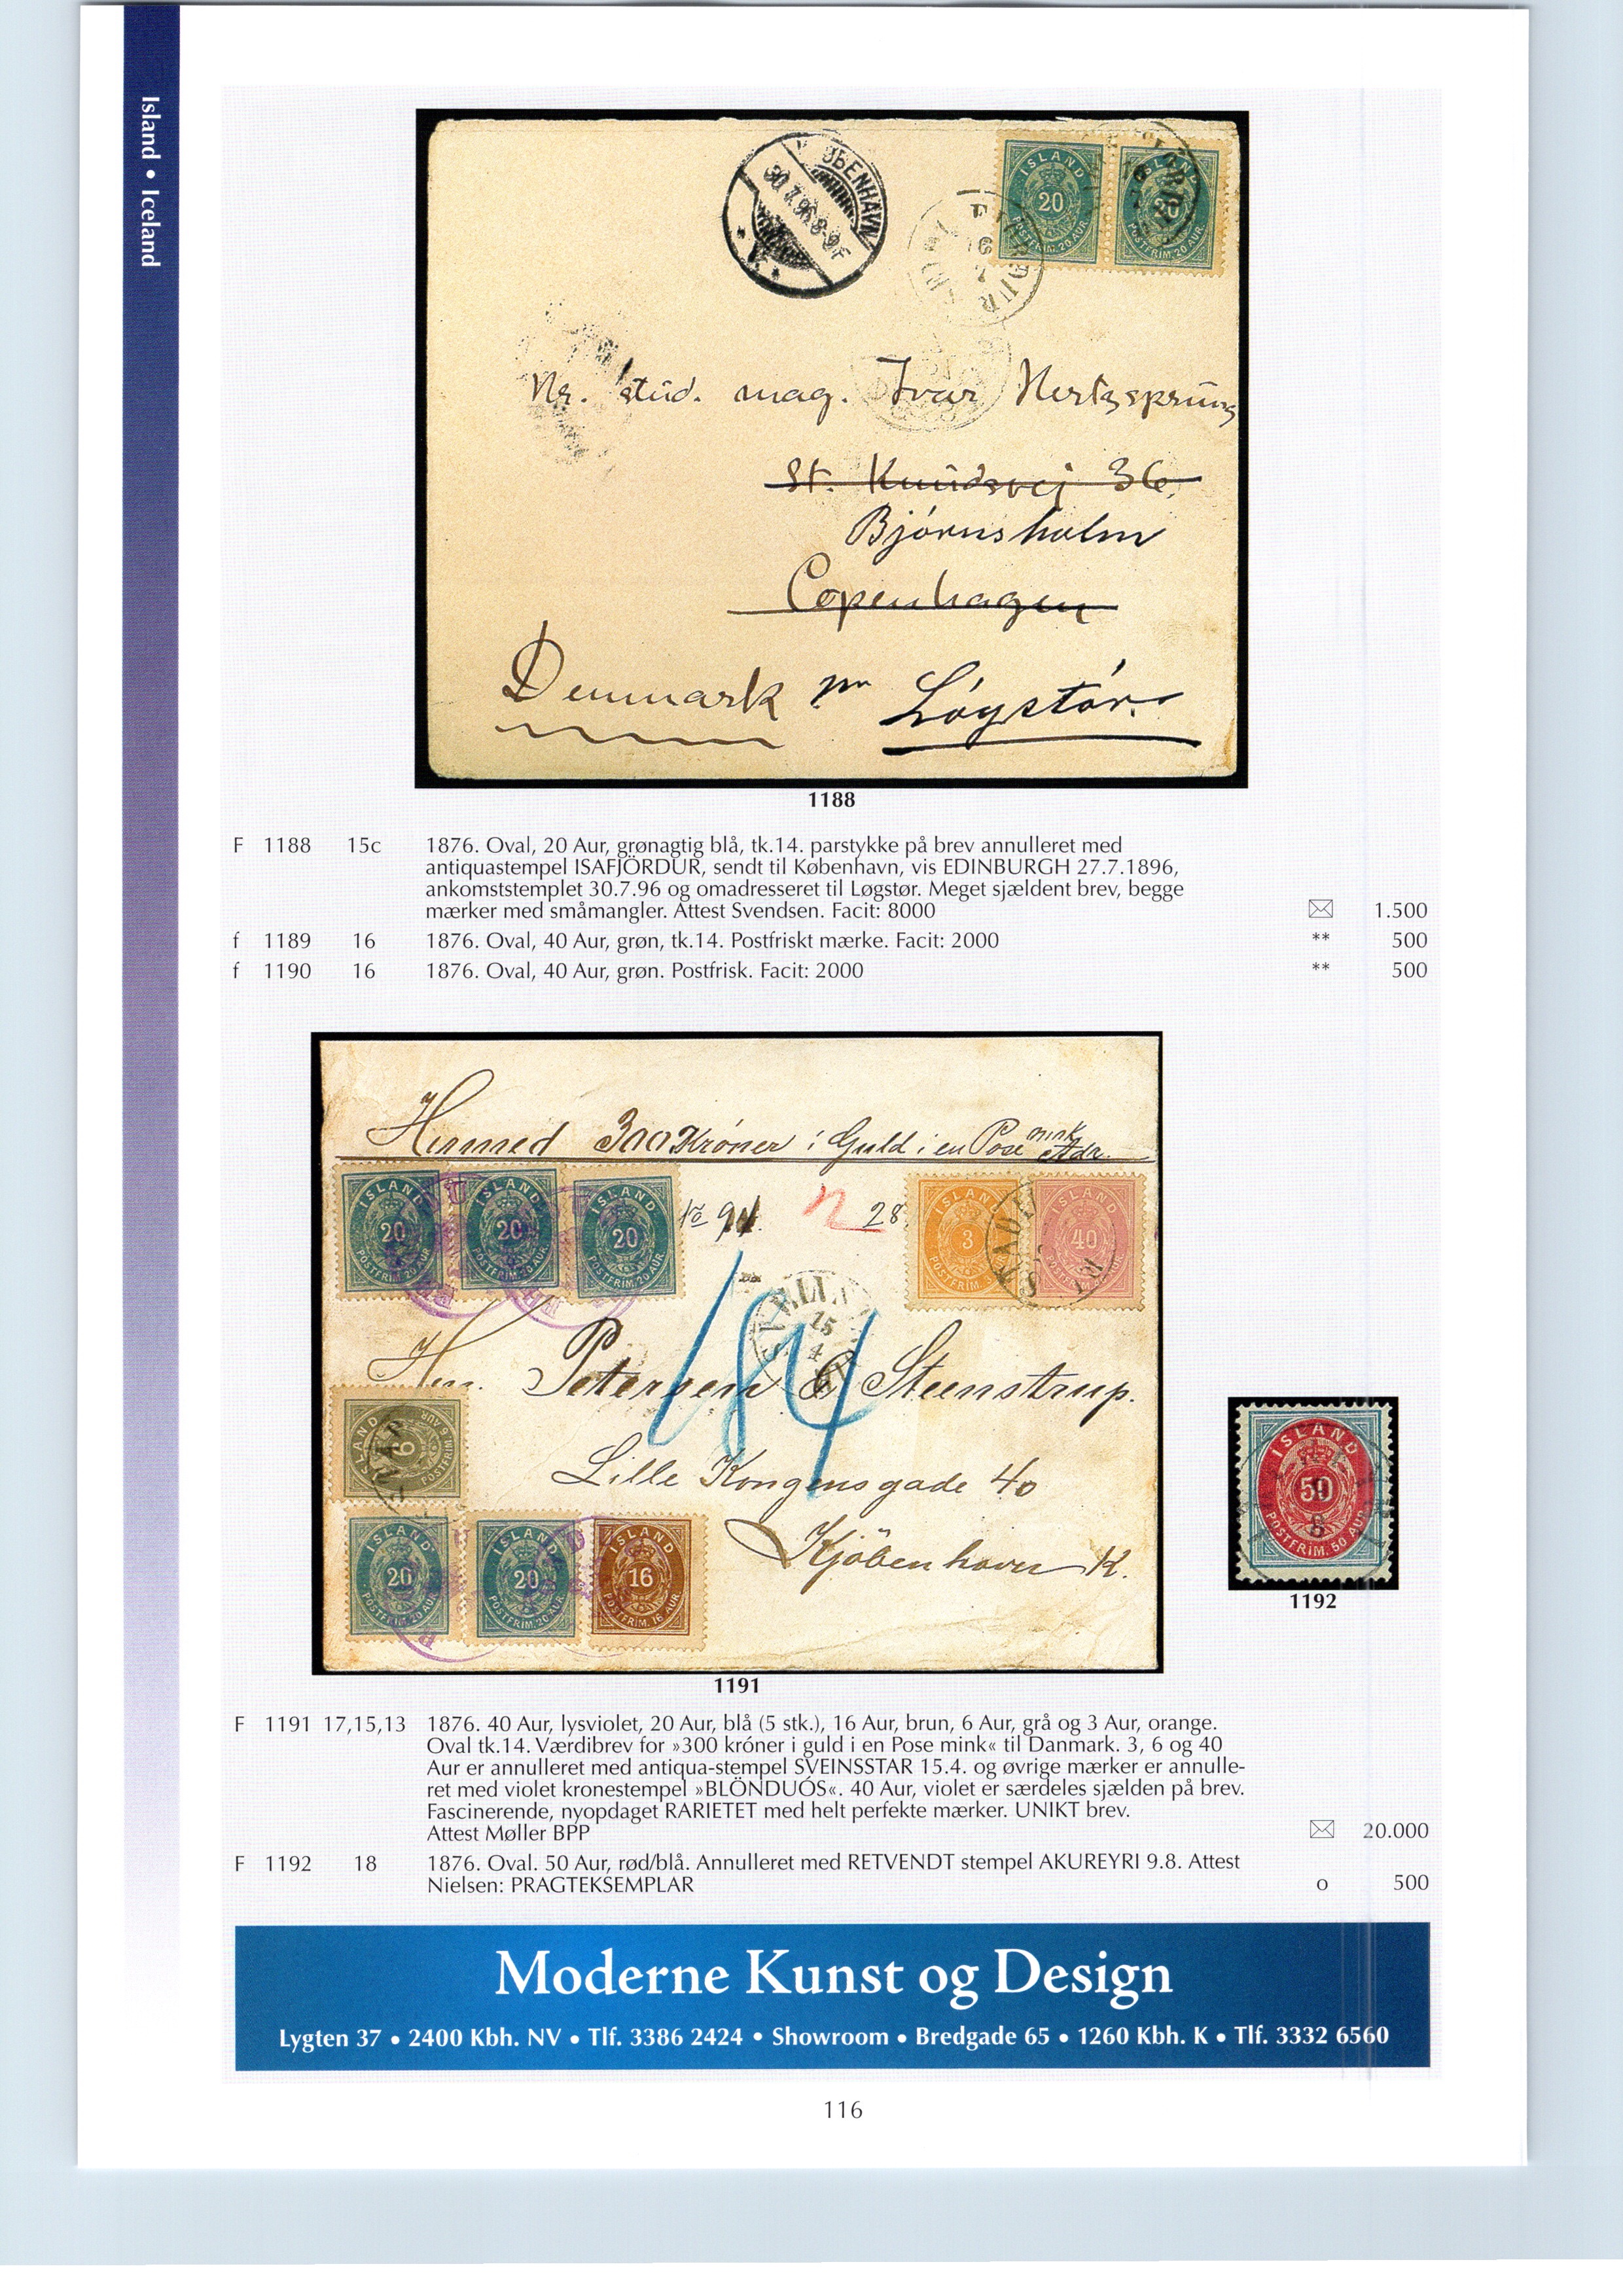 Island • Iceland
ISLAND
20
POSTFRIM. 20 AUR
ISLAND
20
POSTFRIM. 20 AUR
30.7.96.8-9 F
Hr. stud. mag. Ivar Hertzsprung
St. Knudsvej 36
Bjórnsholm
Copenhagen
Denmark pr Lógstór.
1188
F 1188 15c 1876. Oval, 20 Aur, grønagtig blå, tk.14. parstykke på brev annulleret med
antiquastempel ISAFJÖRDUR, sendt til København, vis EDINBURGH 27.7.1896,
ankomststemplet 30.7.96 og omadresseret til Løgstør. Meget sjældent brev, begge
mærker med småmangler. Attest Svendsen. Facit: 8000 1.500
f 1189 16 1876. Oval, 40 Aur, grøn, tk.14. Postfriskt mærke. Facit: 2000 ** 500
f 1190 16 1876. Oval, 40 Aur, grøn. Postfrisk. Facit: 2000 ** 500
Hermed 300 Króner i Guld i en Pose mrk Adr.
ISLAND 20 POSTFRIM. 20 AUR
ISLAND 20 POSTFRIM. 20 AUR
ISLAND 20 POSTFRIM. 20 AUR
28
ISLAND 3 POSTFRIM. 3
ISLAND 40
184
15
4
Herr. Petersen & Steenstrup.
ISLAND 6 POSTFRIM. 6 AUR
Lille Kongensgade 40
Kjöbenhavn K.
ISLAND 20 POSTFRIM. 20 AUR
ISLAND 20 POSTFRIM. 20 AUR
ISLAND 16 POSTFRIM. 16 AUR
ISLAND
50
POSTFRIM. 50 AUR
1192
1191
F 1191 17,15,13 1876. 40 Aur, lysviolet, 20 Aur, blå (5 stk.), 16 Aur, brun, 6 Aur, grå og 3 Aur, orange.
Oval tk.14. Værdibrev for »300 króner i guld i en Pose mink« til Danmark. 3, 6 og 40
Aur er annulleret med antiqua-stempel SVEINSSTAR 15.4. og øvrige mærker er annulle-
ret med violet kronestempel »BLÖNDUÓS«. 40 Aur, violet er særdeles sjælden på brev.
Fascinerende, nyopdaget RARIETET med helt perfekte mærker. UNIKT brev.
Attest Møller BPP 20.000
F 1192 18 1876. Oval. 50 Aur, rød/blå. Annulleret med RETVENDT stempel AKUREYRI 9.8. Attest
Nielsen: PRAGTEKSEMPLAR o 500
Moderne Kunst og Design
Lygten 37 • 2400 Kbh. NV • Tlf. 3386 2424 • Showroom • Bredgade 65 • 1260 Kbh. K • Tlf. 3332 6560
116